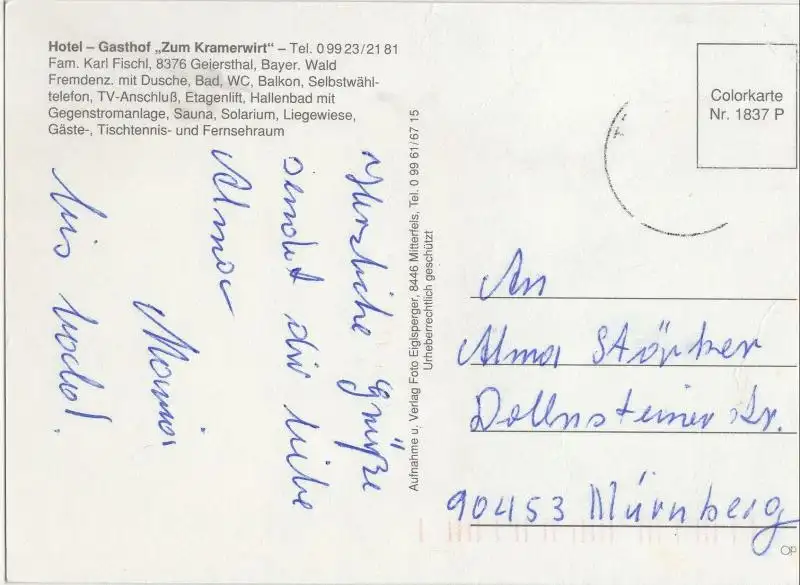 Hotel – Gasthof „Zum Kramerwirt“ – Tel. 0 99 23 / 21 81
Fam. Karl Fischl, 8376 Geiersthal, Bayer. Wald
Fremdenz. mit Dusche, Bad, WC, Balkon, Selbstwähl-
telefon, TV-Anschluß, Etagenlift, Hallenbad mit
Gegenstromanlage, Sauna, Solarium, Liegewiese,
Gäste-, Tischtennis- und Fernsehraum
Herzliche Grüße
sendet dir liebe
Alma
Mami
bis bald!
Aufnahme u. Verlag Foto Eiglsperger, 8446 Mitterfels, Tel. 0 99 61 / 67 15
Urheberrechtlich geschützt
Colorkarte
Nr. 1837 P
An
Alma Störker
Dollnsteiner Str.
90453 Nürnberg
OP